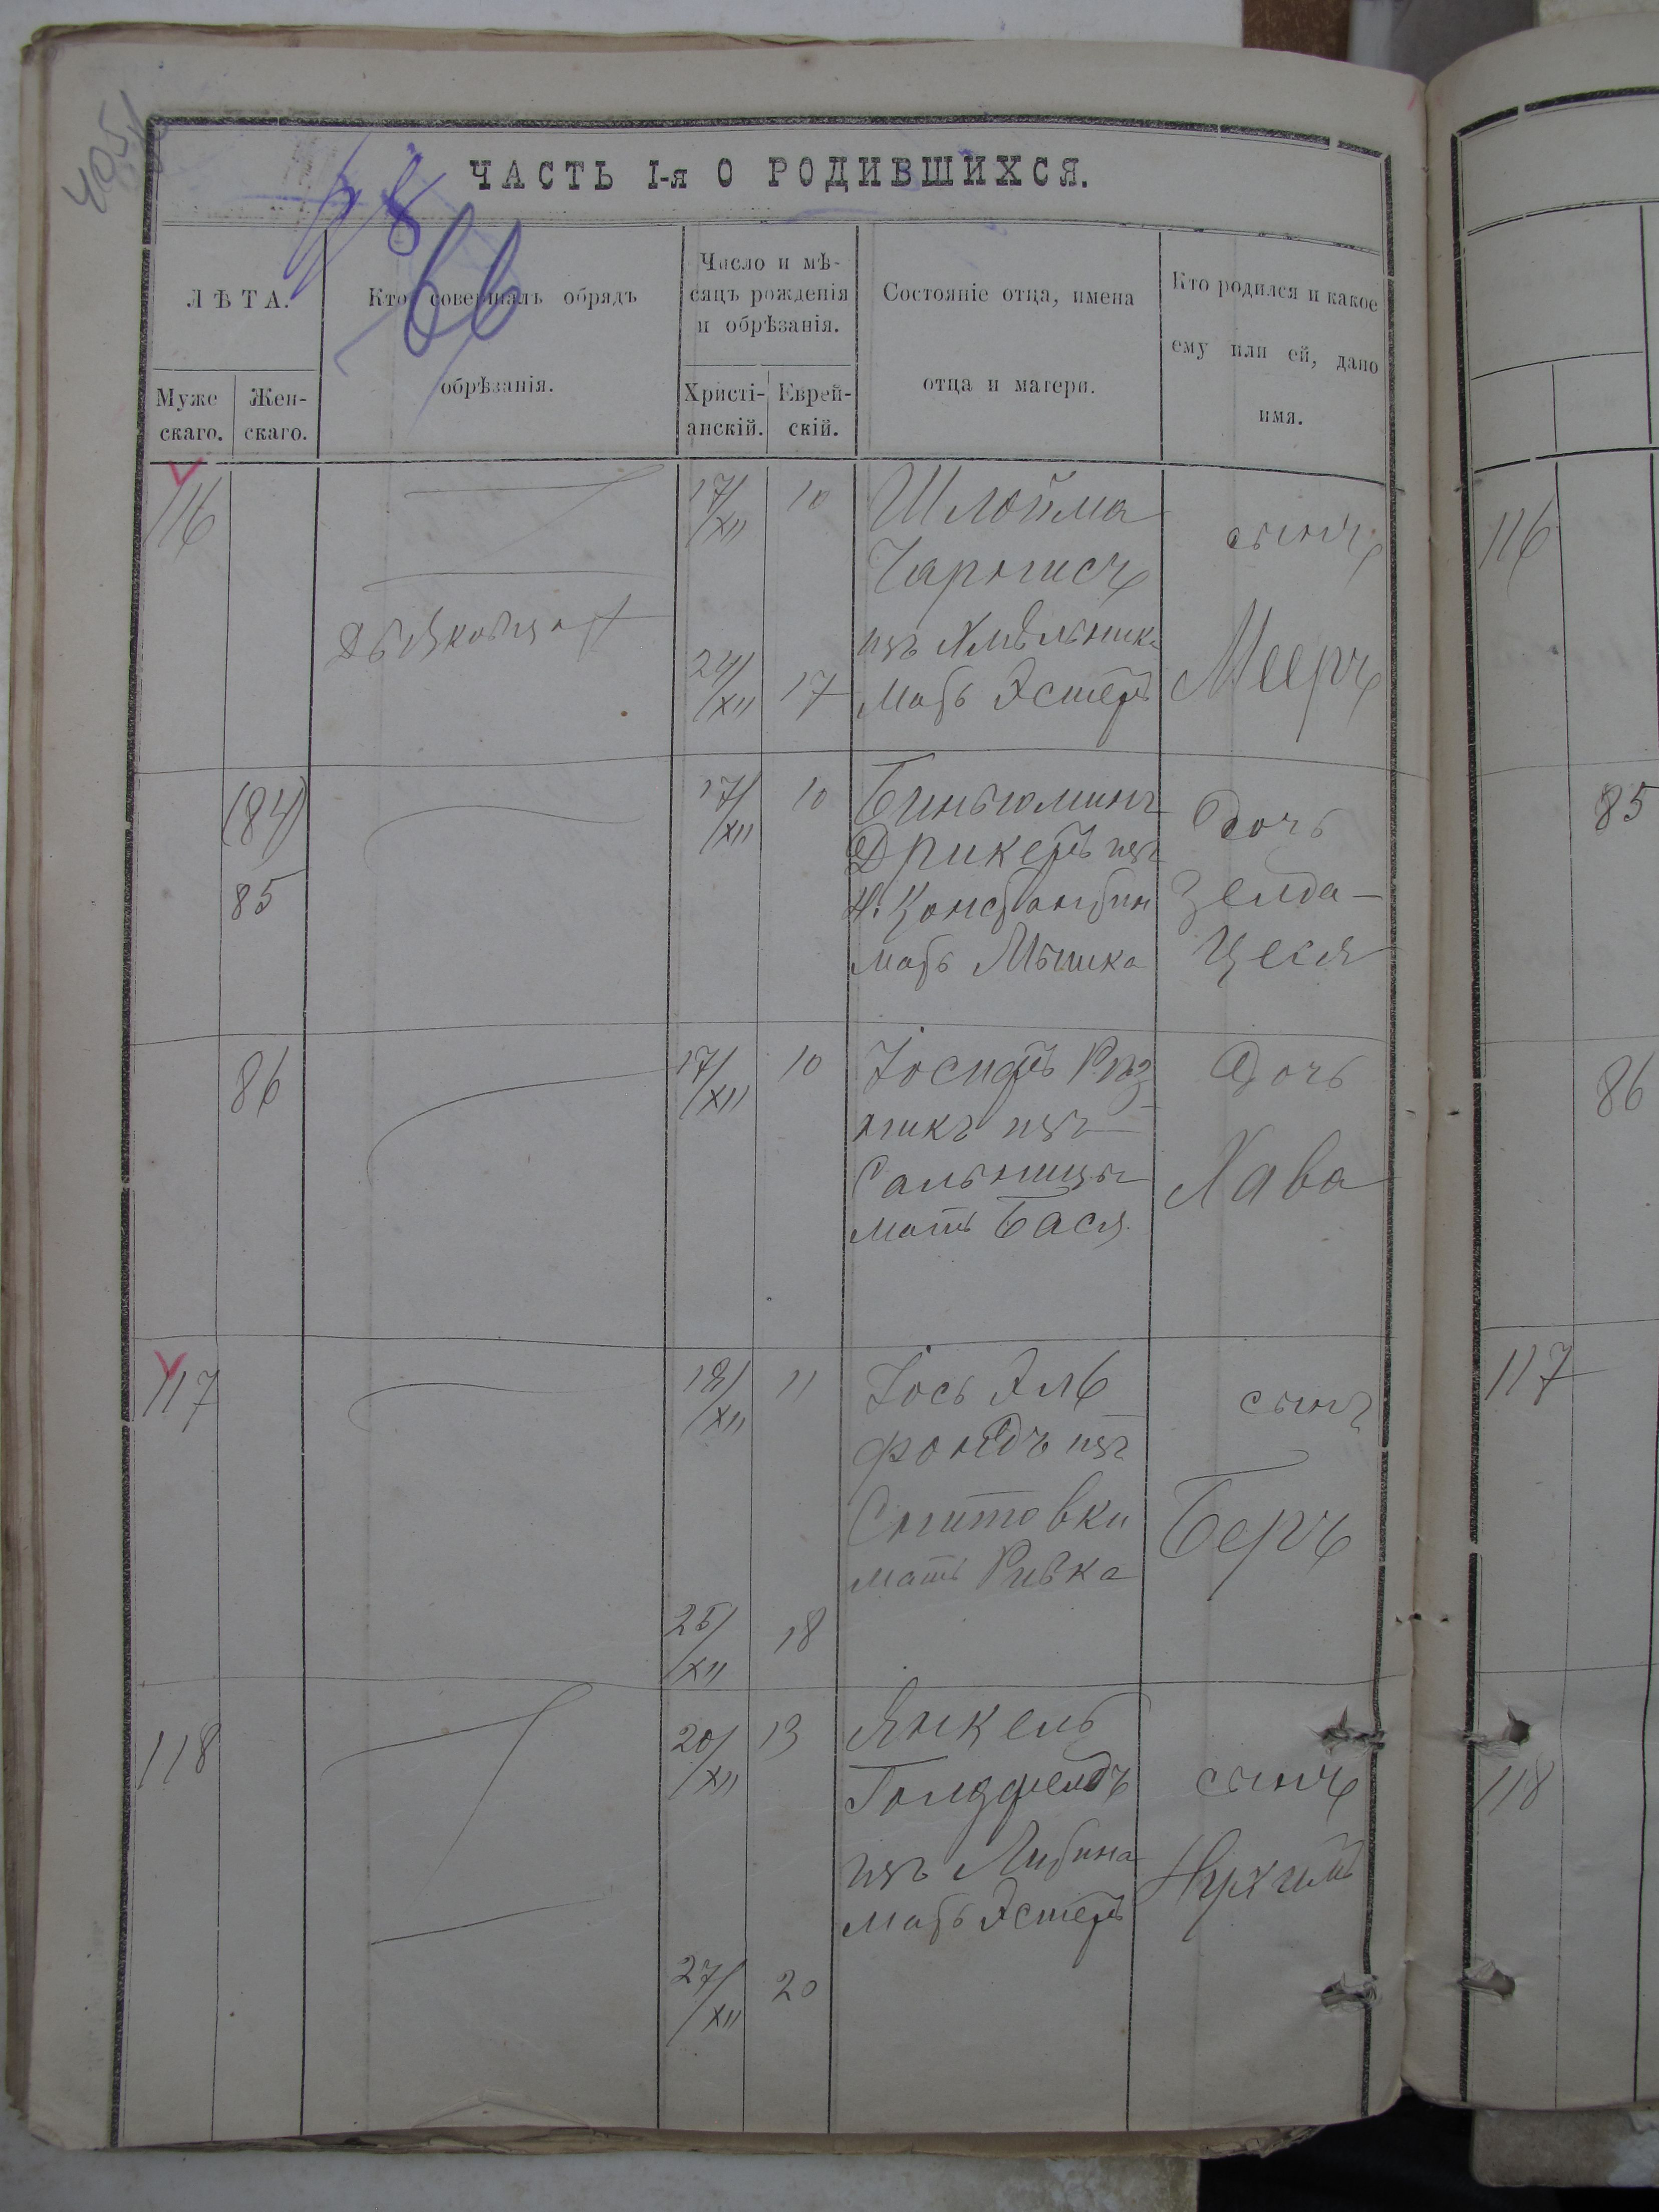 4051
78
66
ЧАСТЬ I-я О РОДИВШИХСЯ.
ЛѢТА.
Муже
скаго.
Жен-
скаго.
Кто совершалъ обрядъ
обрѣзанія.
Число и мѣ-
сяцъ рожденія
и обрѣзанія.
Христі-
анскій.
Еврей-
скій.
Состояніе отца, имена
отца и матери.
Кто родился и какое
ему или ей, дано
имя.
116
17/XII
10
24/XII
17
Шлойма
изъ Хмѣльника
мать Эстеръ
сынъ
Мееръ
(84)
85
17/XII
10
Биньюминъ
Дрикеръ изъ
Н. Константин
мать Мышка
дочь
Зелда-
Цеся
86
17/XII
10
Іосифъ Рѣз
никъ изъ
Сальницы
мать Бася
Дочь
Хава
117
18/XII
11
25/XII
18
Іось Эль
фондъ изъ
Снитовки
мать Ривка
сынъ
Беръ
118
20/XII
13
27/XII
20
Янкель
Голдфелдъ
изъ Литина
мать Эстеръ
сынъ
Нухимъ
116
85
86
117
118